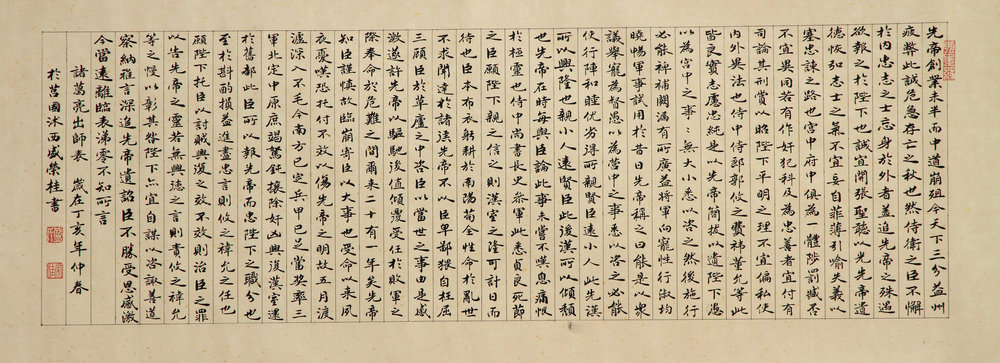 先帝創業未半而中道崩殂今天下三分益州
疲弊此誠危急存亡之秋也然侍衛之臣不懈
於內忠志之士忘身於外者蓋追先帝之殊遇
欲報之於陛下也誠宜開張聖聽以光先帝遺
德恢弘志士之氣不宜妄自菲薄引喻失義以
塞忠諫之路也宮中府中俱為一體陟罰臧否
不宜異同若有作奸犯科及為忠善者宜付有
司論其刑賞以昭陛下平明之理不宜偏私使
內外異法也侍中侍郎郭攸之費禕董允等此
皆良實志慮忠純是以先帝簡拔以遺陛下愚
以為宮中之事〻無大小悉以咨之然後施行
必能裨補闕漏有所廣益將軍向寵性行淑均
曉暢軍事試用於昔日先帝稱之曰能是以眾
議舉寵為督愚以為營中之事悉以咨之必能
使行陣和睦優劣得所親賢臣遠小人此先漢
所以興隆也親小人遠賢臣此後漢所以傾頹
也先帝在時每與臣論此事未嘗不嘆息痛恨
於桓靈也侍中尚書長史參軍此悉貞良死節
之臣願陛下親之信之則漢室之隆可計日而
待也臣本布衣躬耕於南陽苟全性命於亂世
不求聞達於諸侯先帝不以臣卑鄙猥自枉屈
三顧臣於草廬之中咨臣以當世之事由是感
激遂許先帝以驅馳後值傾覆受任於敗軍之
際奉命於危難之間爾來二十有一年矣先帝
知臣謹慎故臨崩寄臣以大事也受命以來夙
夜憂嘆恐托付不效以傷先帝之明故五月渡
瀘深入不毛今南方已定兵甲已足當獎率三
軍北定中原庶竭駑鈍攘除奸凶興復漢室還
於舊都此臣所以報先帝而忠陛下之職分也
至於斟酌損益進盡忠言則攸之禕允之任也
願陛下托臣以討賊興復之效不效則治臣之罪
以告先帝之靈若無興德之言則責攸之禕允
等之慢以彰其咎陛下亦宜自謀以咨諏善道
察納雅言深追先帝遺詔臣不勝受恩感激
今當遠離臨表涕零不知所言
諸葛亮出師表 歲在丁亥年仲春
於莒國沭西盛榮桂書